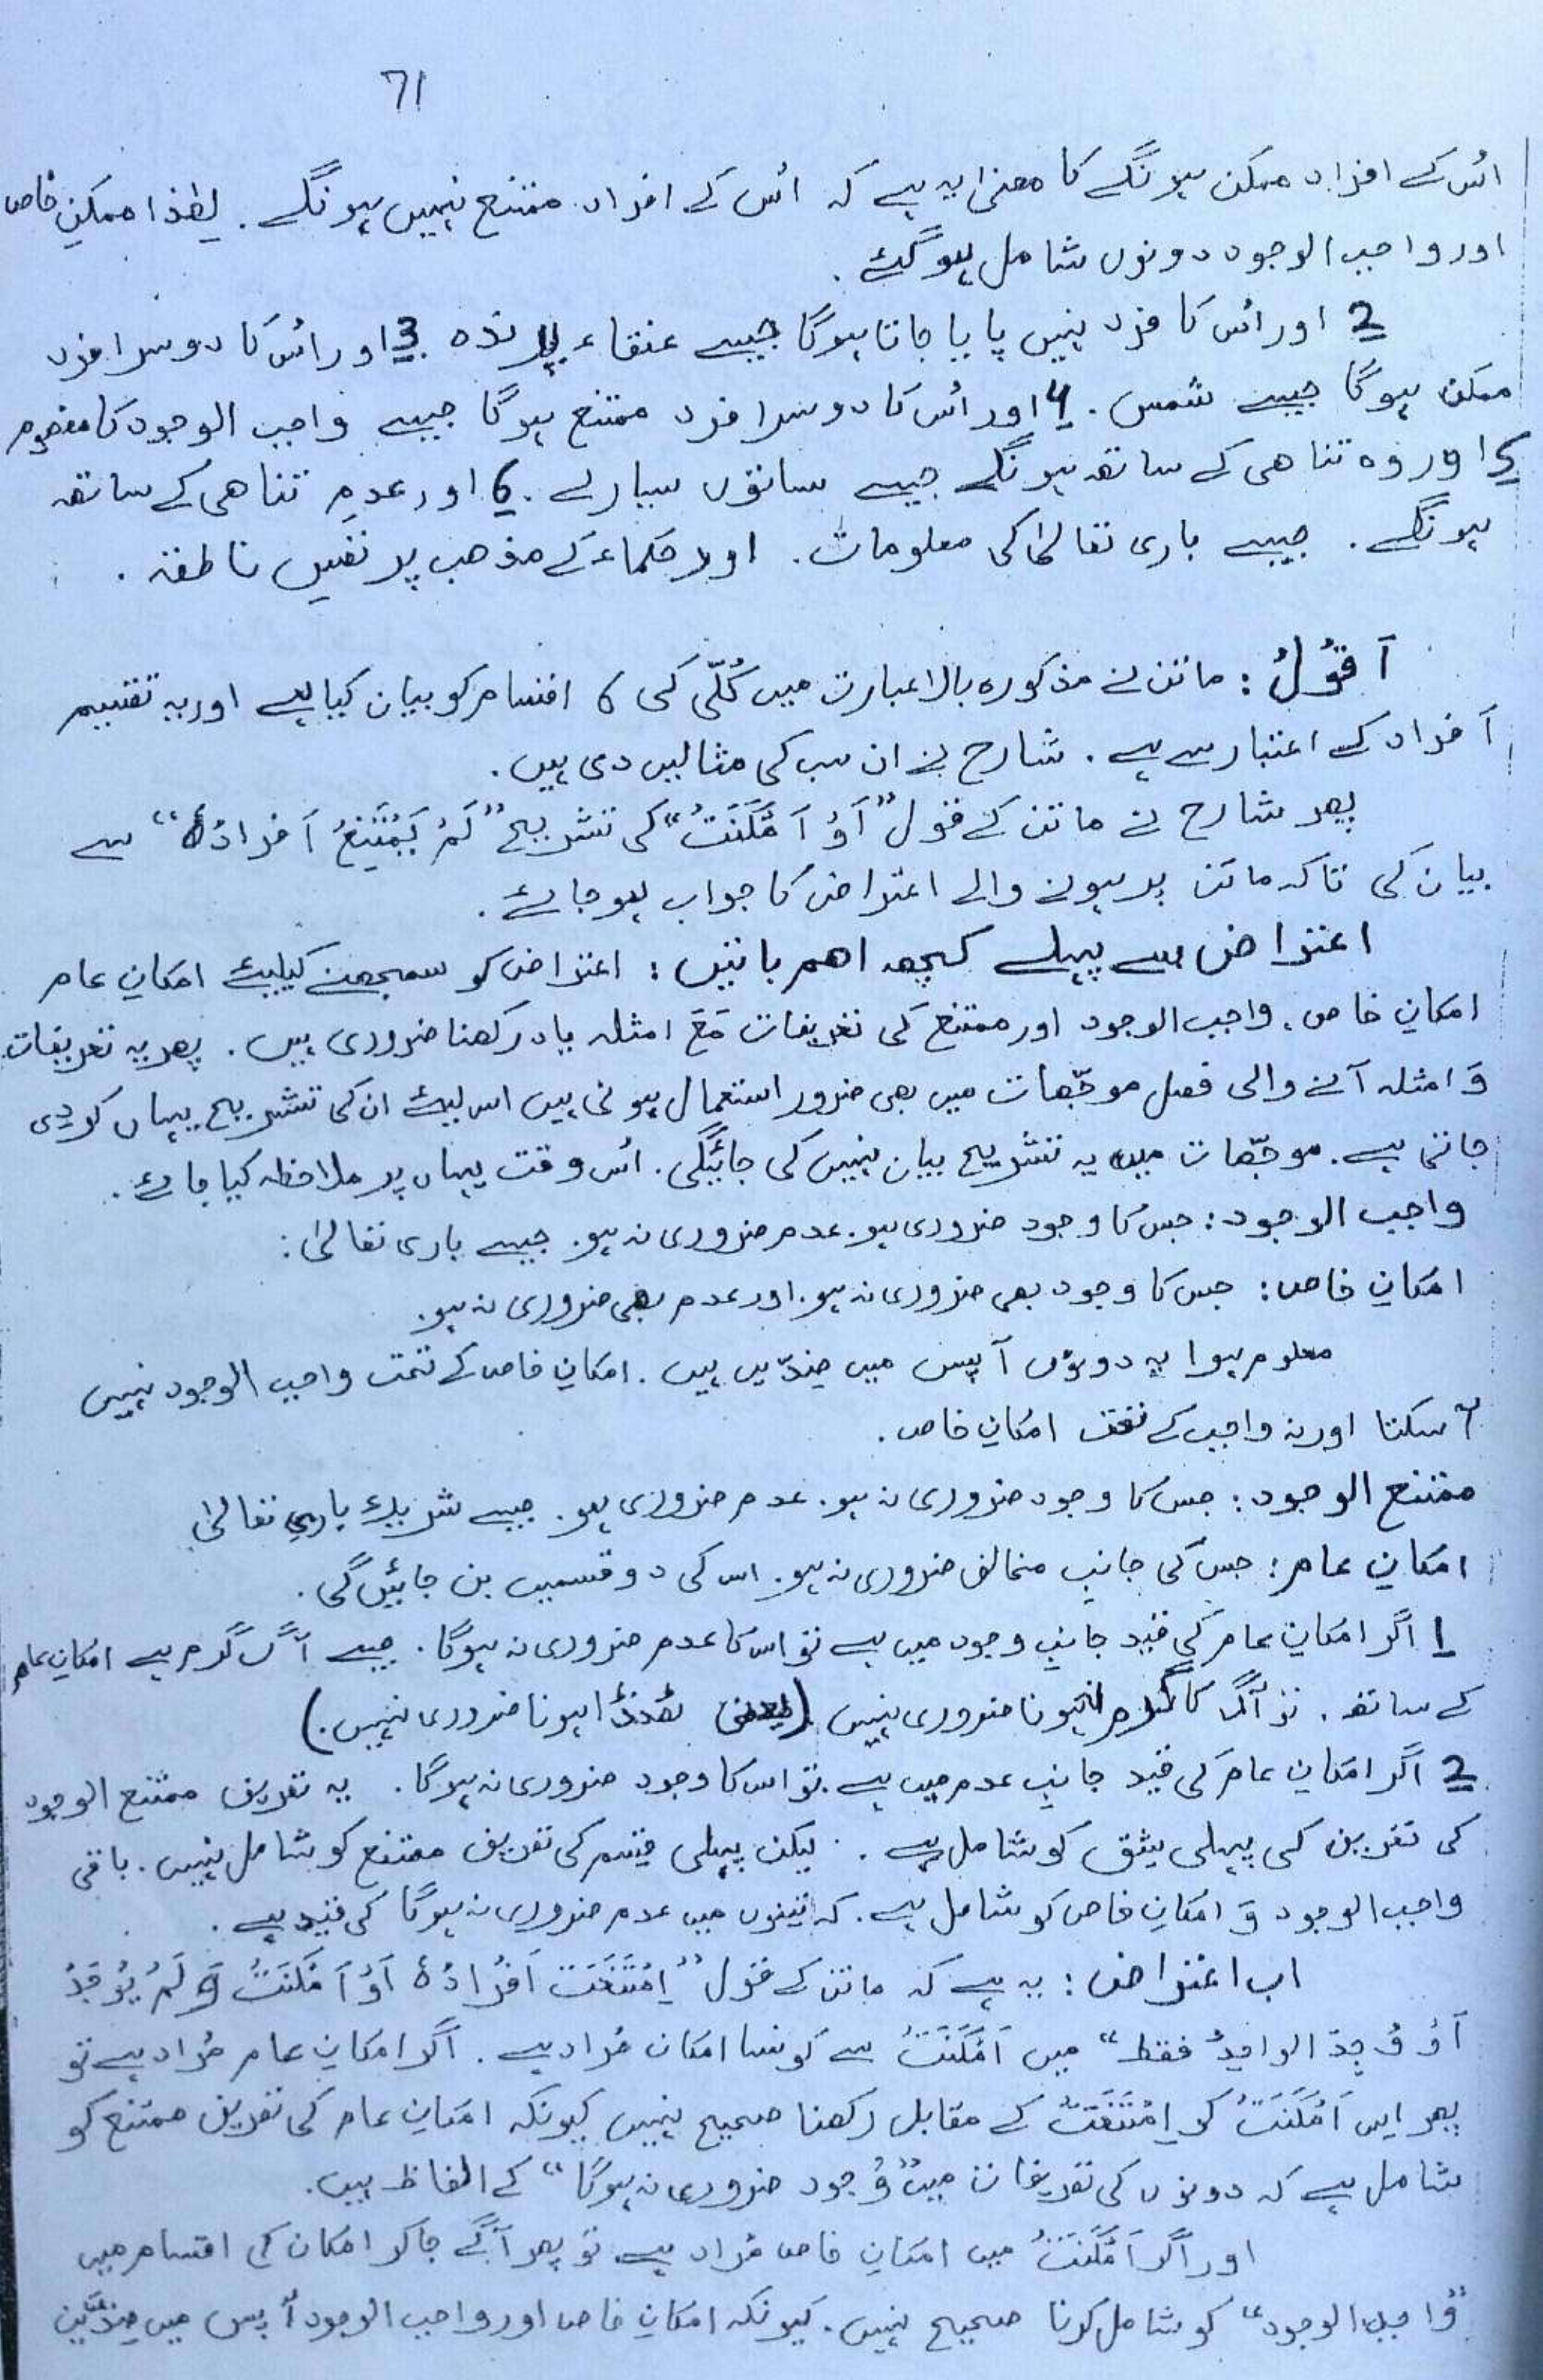 71
اُس کے افراد ممکن ہونگے کا معنیٰ یہ ہے کہ اُس کے افراد ممتنع نہیں ہونگے . لھٰذا ممکنِ خاص
اور واجب الوجود دونوں شامل ہوگئے .
2 اور اُس کا فرد نہیں پایا جاتا ہوگا جیسے عنقاء پرندہ . 3 اور اُس کا دوسرا فرد
ممکن ہوگا جیسے شمس . 4 اور اُس کا دوسرا فرد ممتنع ہوگا جیسے واجب الوجود کا مفھوم
5 اور وہ تناھی کے ساتھ ہونگے جیسے ساتوں سیارے . 6 اور عدمِ تناھی کے ساتھ
ہونگے . جیسے باری تعالیٰ کی معلومات . اور حکماء کے مذھب پر نفسِ ناطقہ .
اَقُوْلُ : ماتن نے مذکورہ بالا عبارت میں کُلّی کی 6 اقسام کو بیان کیا ہے اور یہ تقسیم
اَفراد کے اعتبار سے ہے . شارح نے ان سب کی مثالیں دی ہیں .
پھر شارح نے ماتن کے قول ”اَوْ اَمْکَنَتْ“ کی تشریح ”لَمْ یَمْتَنِعْ اَفرادُہٗ“ سے
بیان کی تاکہ ماتن پر ہونے والے اعتراض کا جواب ہوجائے .
اعتراض سے پہلے کچھ اھم باتیں : اعتراض کو سمجھنے کیلیئے امکانِ عام
امکانِ خاص ، واجب الوجود اور ممتنع کی تعریفات مَعَ امثلہ یاد رکھنا ضروری ہیں . پھر یہ تعریفات
وَ امثلہ آنے والی فصل موجّھات میں بھی ضرور استعمال ہونی ہیں اس لیئے ان کی تشریح یہاں کردی
جاتی ہے . موجّھات میں یہ تشریح بیان نہیں کی جائیگی . اُس وقت یہاں پر ملاحظہ کیا جائے .
واجب الوجود : جس کا وجود ضروری ہو . عدم ضروری نہ ہو . جیسے باری تعالیٰ :
امکانِ خاص : جس کا وجود بھی ضروری نہ ہو . اور عدم بھی ضروری نہ ہو .
معلوم ہوا یہ دونوں آپس میں ضِدّیں ہیں . امکانِ خاص کے تحت واجب الوجود نہیں
آسکتا اور نہ واجب کے تحت امکانِ خاص .
ممتنع الوجود : جس کا وجود ضروری نہ ہو . عدم ضروری ہو . جیسے شریکِ باری تعالیٰ
امکانِ عام : جس کی جانبِ مخالف ضروری نہ ہو . اس کی دو قسمیں بن جائیں گی .
1 اگر امکانِ عام کی قید جانبِ وجود میں ہے تو اس کا عدم ضروری نہ ہوگا . جیسے آگ گرم ہے امکانِ عام
کے ساتھ . تو آگ کا گرم نہ ہونا ضروری نہیں ( یعنی ٹھنڈا ہونا ضروری نہیں . )
2 اگر امکانِ عام کی قید جانبِ عدم میں ہے . تو اس کا وجود ضروری نہ ہوگا . یہ تعریف ممتنع الوجود
کی تعریف کی پہلی شِق کو شامل ہے . لیکن پہلی قسم کی تعریف ممتنع کو شامل نہیں . باقی
واجب الوجود وَ امکانِ خاص کو شامل ہے . کہ تینوں میں عدم ضروری نہ ہوگا کی قید ہے .
اب اعتراض : یہ ہے کہ ماتن کے قول ”اِمْتَنَعَتْ اَفْرَادُہٗ اَوْ اَمْکَنَتْ وَ لَمْ یُوْجَدْ
اَوْ وُجِدَ الواحِدُ فقط“ میں اَمْکَنَتْ سے کونسا امکان مُراد ہے . اگر امکانِ عام مُراد ہے تو
پھر اِس اَمْکَنَتْ کو اِمْتَنَعَتْ کے مقابل رکھنا صحیح نہیں کیونکہ امکانِ عام کی تعریف ممتنع کو
شامل ہے کہ دونوں کی تعریفات میں ”وُجود ضروری نہ ہوگا“ کے الفاظ ہیں .
اور اگر اَمْکَنَتْ میں امکانِ خاص مُراد ہے . تو پھر آگے جاکر امکان کی اقسام میں
”واجب الوجود“ کو شامل کرنا صحیح نہیں . کیونکہ امکانِ خاص اور واجب الوجود آپس میں ضِدَّیْن